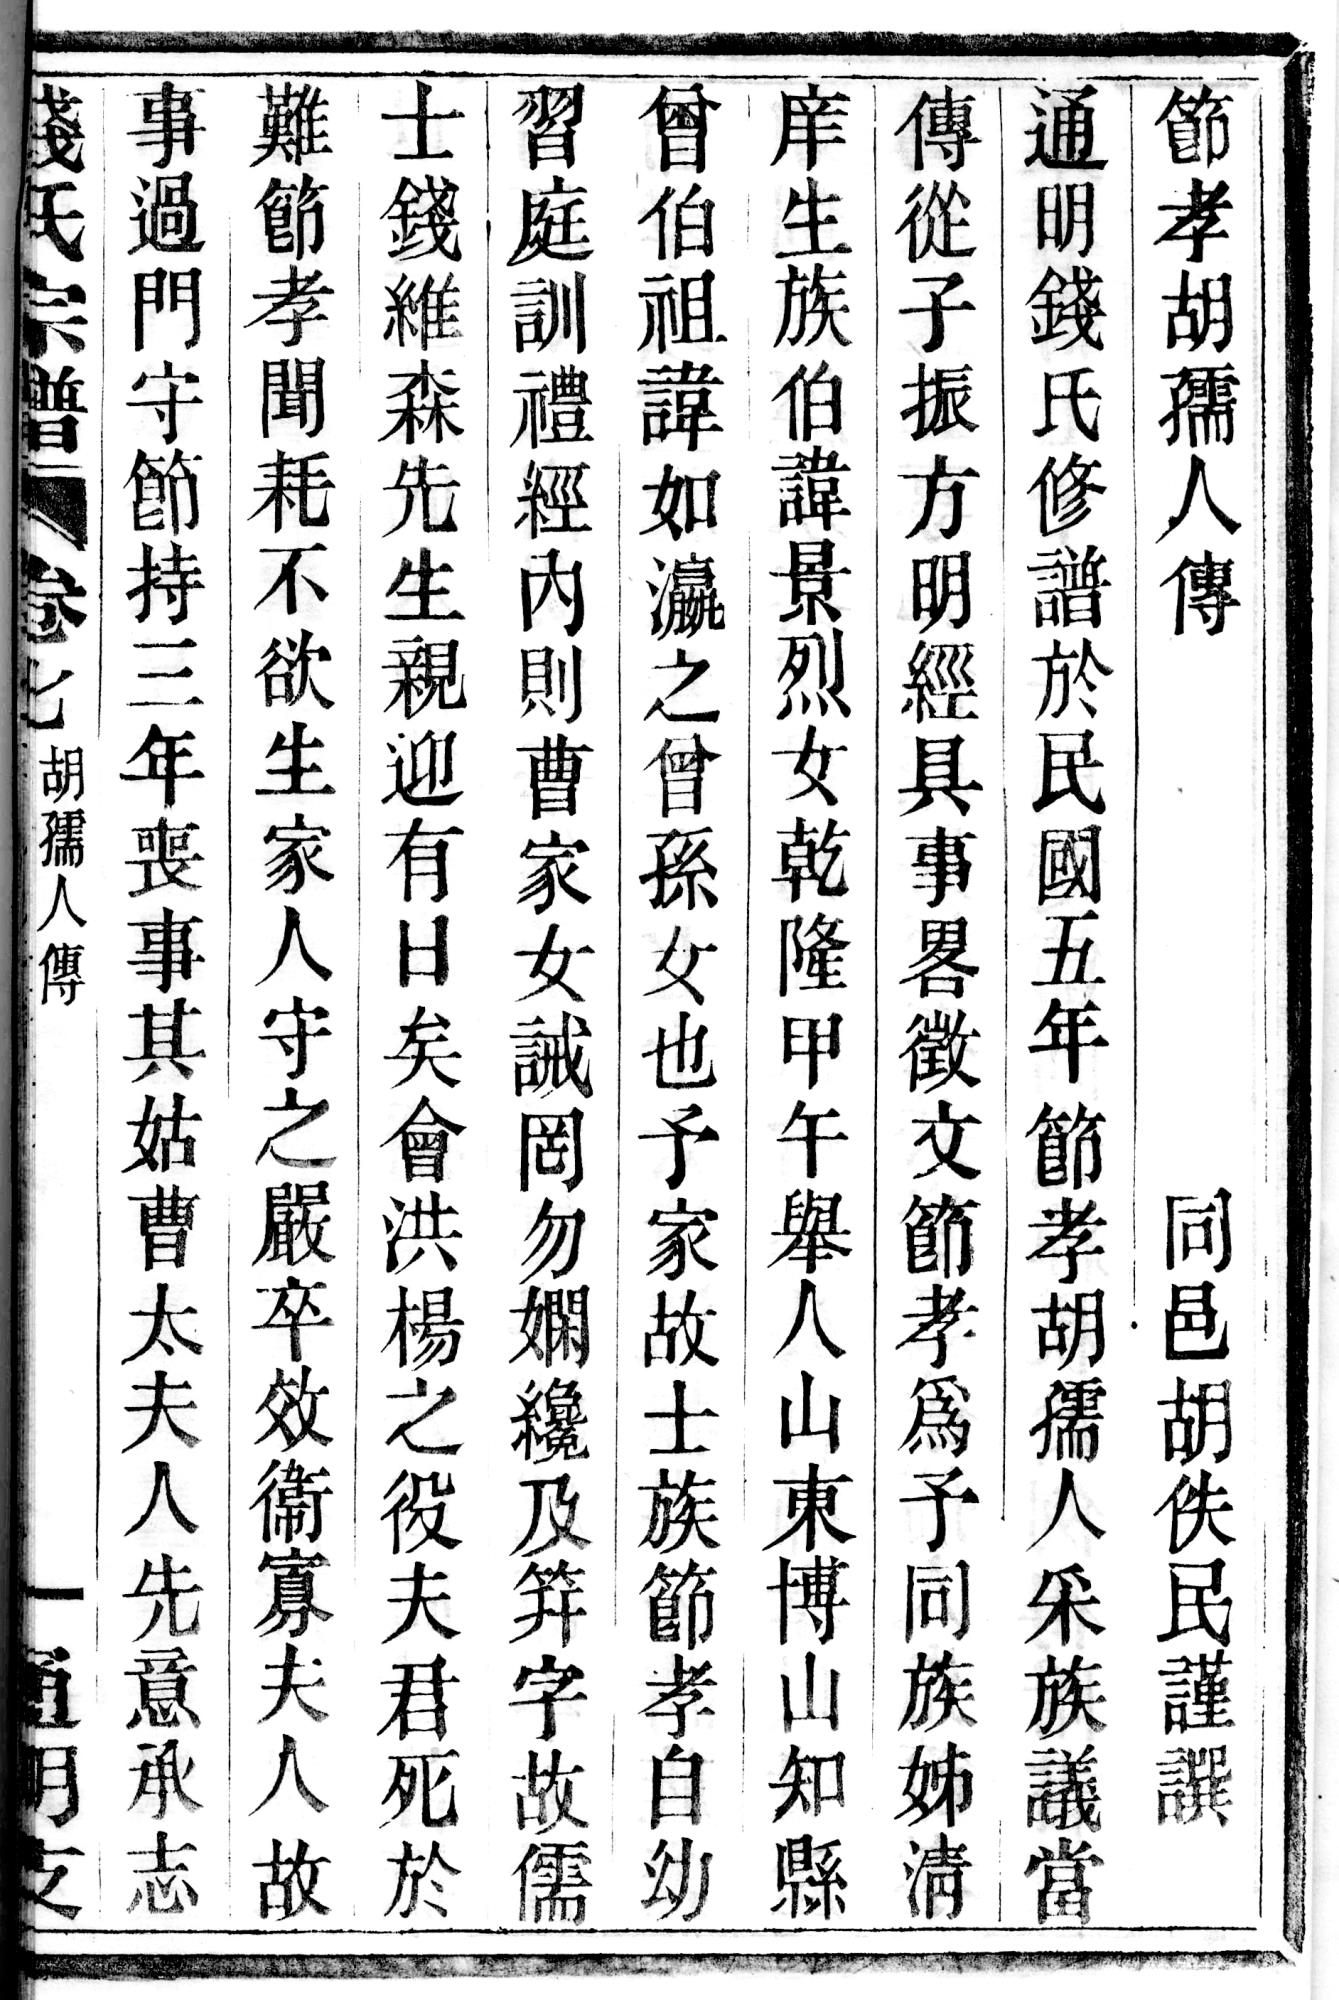 節孝胡孺人傳　　　　　　同邑胡佚民謹譔
通明錢氏修譜於民國五年　節孝胡孺人采族議當
傳從子振方明經具事畧徵文節孝爲予同族姊清
庠生族伯諱景烈女乾隆甲午舉人山東博山知縣
曾伯祖諱如瀛之曾孫女也予家故士族節孝自幼
習庭訓禮經內則曹家女誡罔勿嫻纔及笄字故儒
士錢維森先生親迎有日矣會洪楊之役夫君死於
難節孝聞耗不欲生家人守之嚴卒效衞寡夫人故
事過門守節持三年喪事其姑曹太夫人先意承志
錢氏宗譜　卷七　胡孺人傳　一　通明支